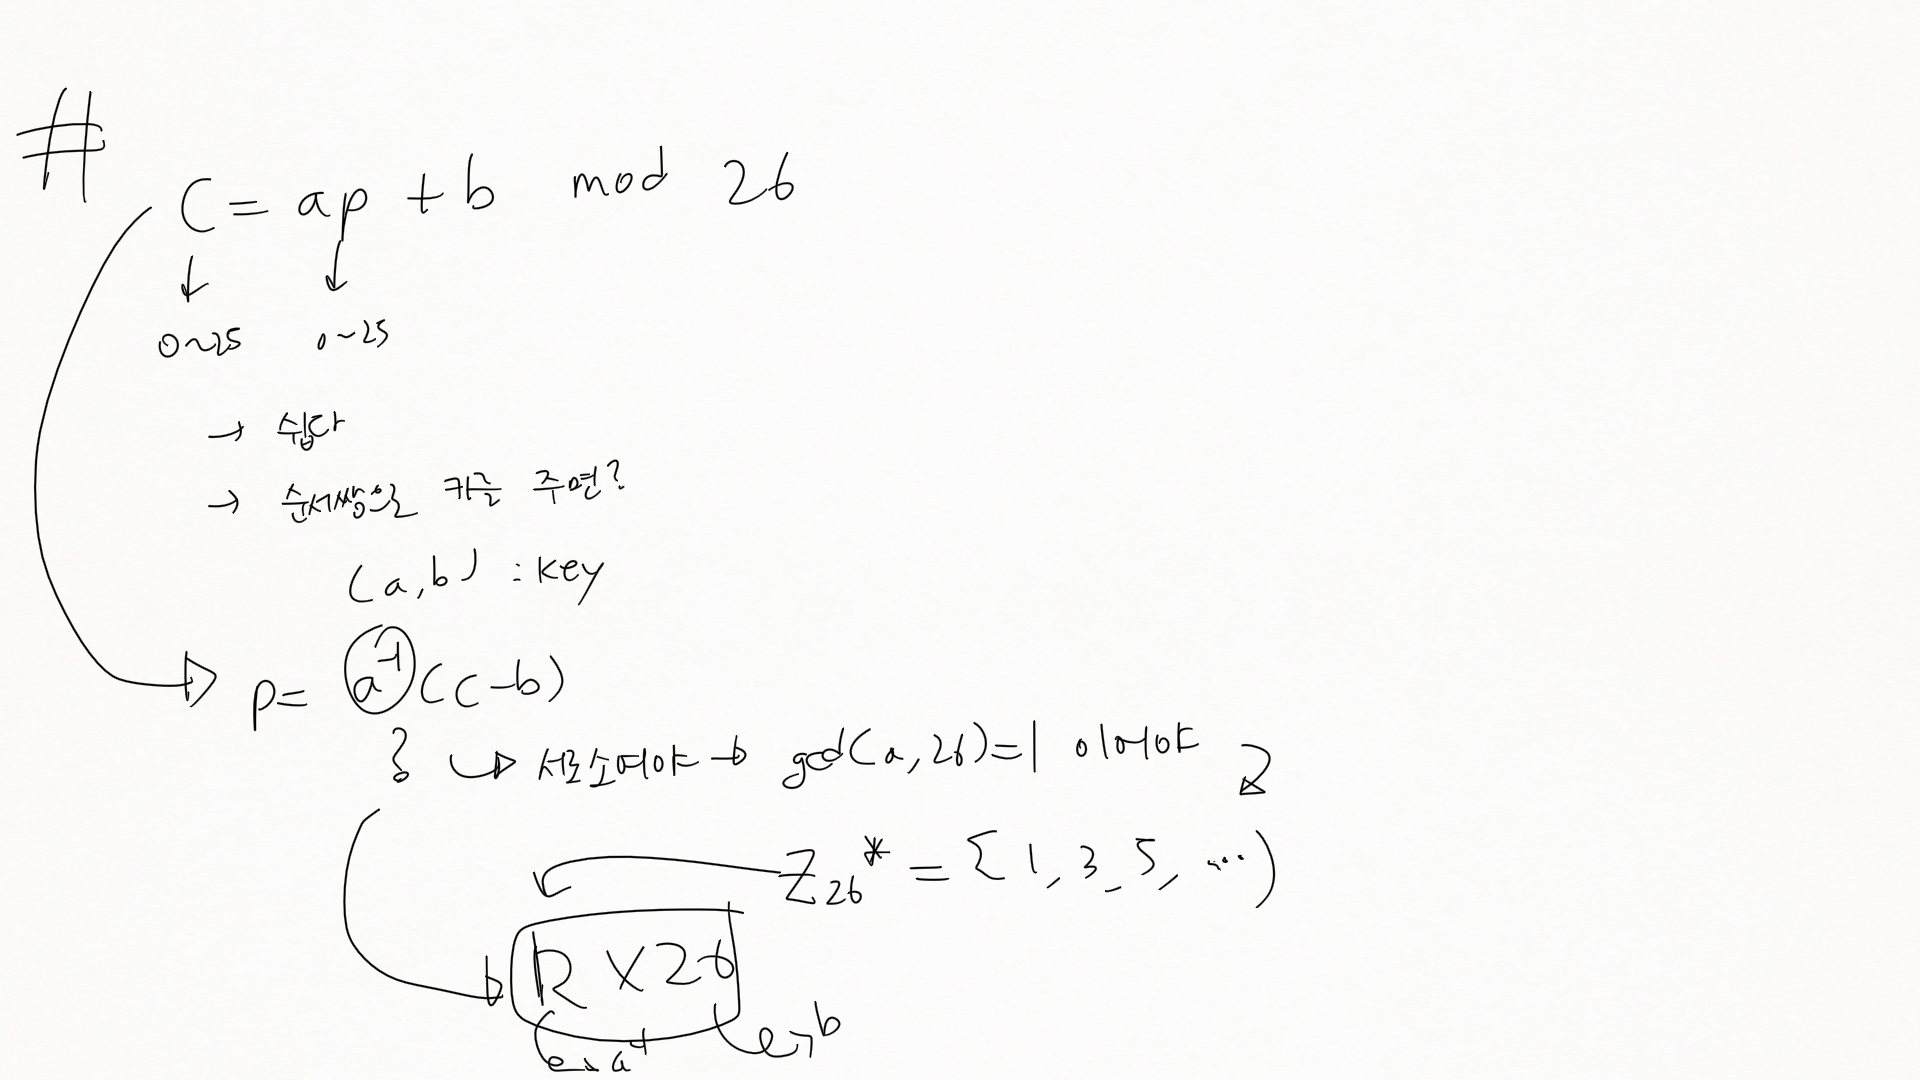 #
C = ap + b mod 26
0~25 0~25
→ 쉽다
→ 순서쌍으로 키를 주면?
(a,b) : key
p = a⁻¹(c-b)
? 서로소여야 → gcd(a,26)=1 이어야
Z₂₆* = {1, 3, 5, ...)
12 X 26
a⁻¹ b